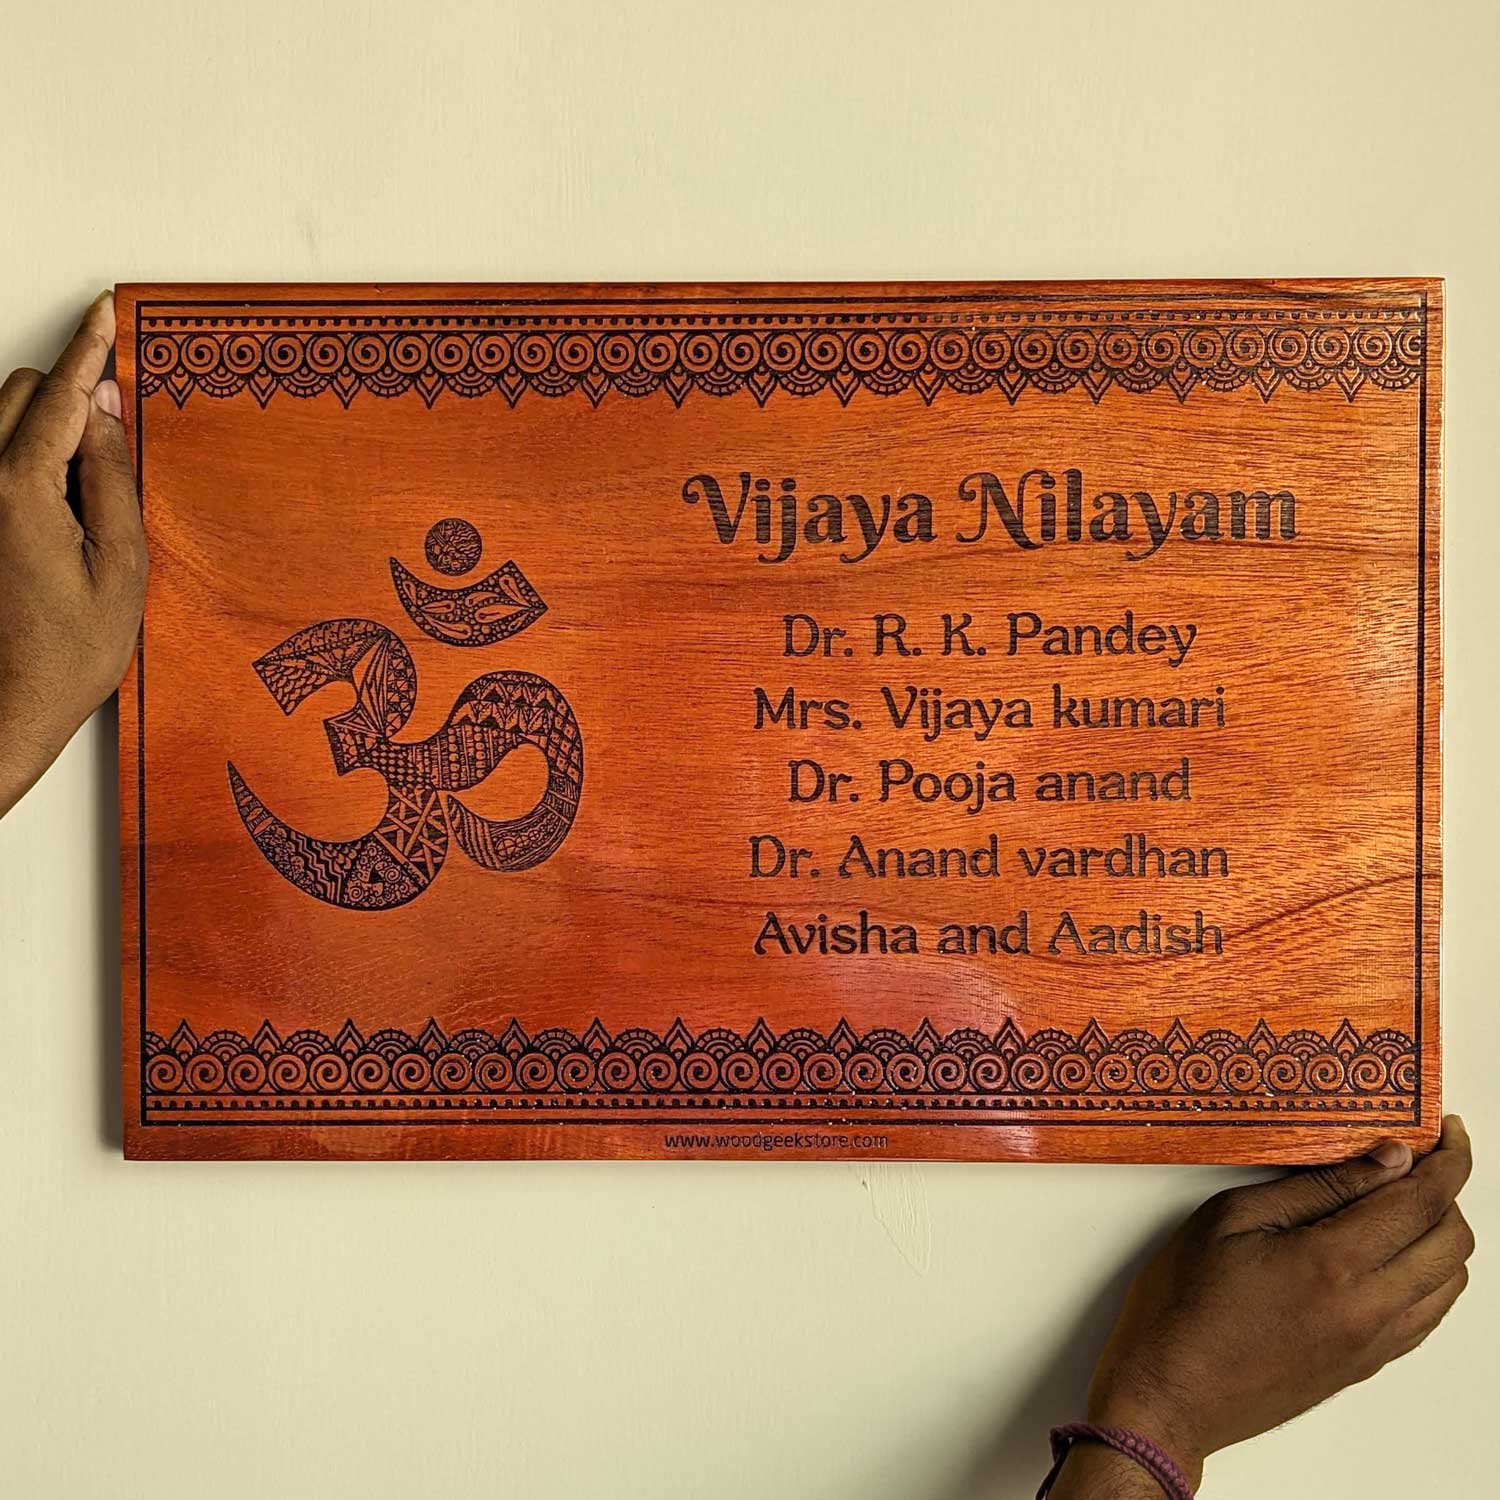 ॐ
Vijaya Nilayam
Dr. R. K. Pandey
Mrs. Vijaya kumari
Dr. Pooja anand
Dr. Anand vardhan
Avisha and Aadish
www.woodgeekstore.com